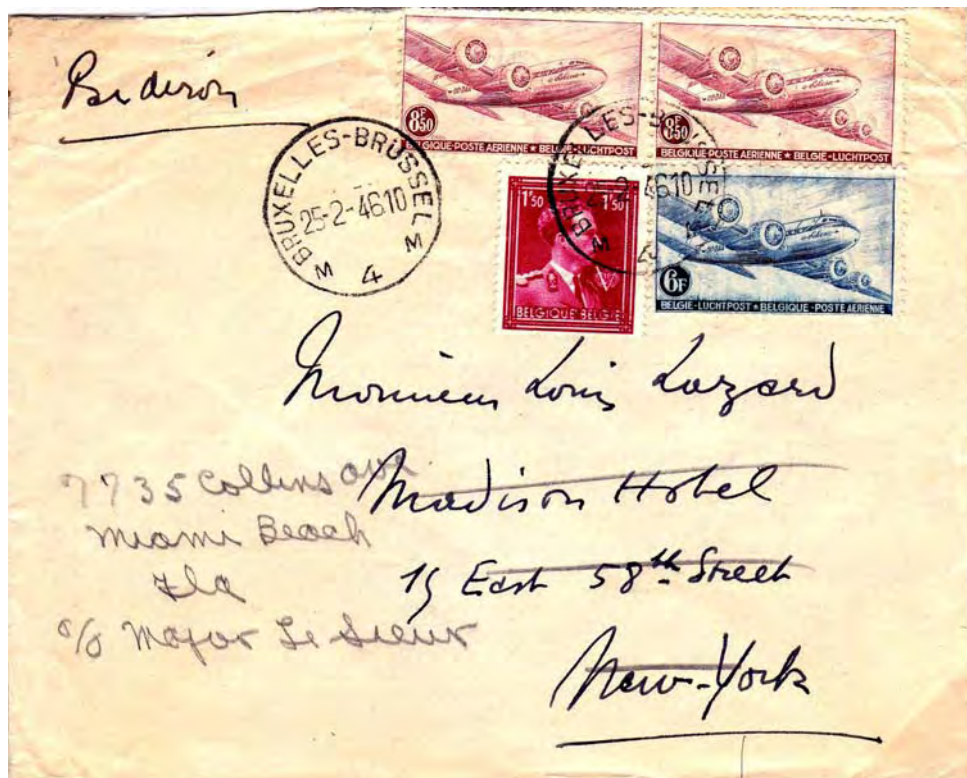 Par avion
8F50
BELGIQUE-POSTE AERIENNE ★ BELGIE-LUCHTPOST
8F50
BELGIQUE-POSTE AERIENNE ★ BELGIE-LUCHTPOST
BRUXELLES-BRÜSSEL
25-2-46.10
M 4 M
BRUXELLES-BRÜSSEL
25-2-46.10
M 4
1F50 1F50
BELGIQUE BELGIË
6F
BELGIE-LUCHTPOST ★ BELGIQUE-POSTE AERIENNE
Monsieur Louis Lazard
Madison Hotel
15 East 58th Street
New-York
7735 Collins Ave
Miami Beach
Fla
c/o Major Le Sieur